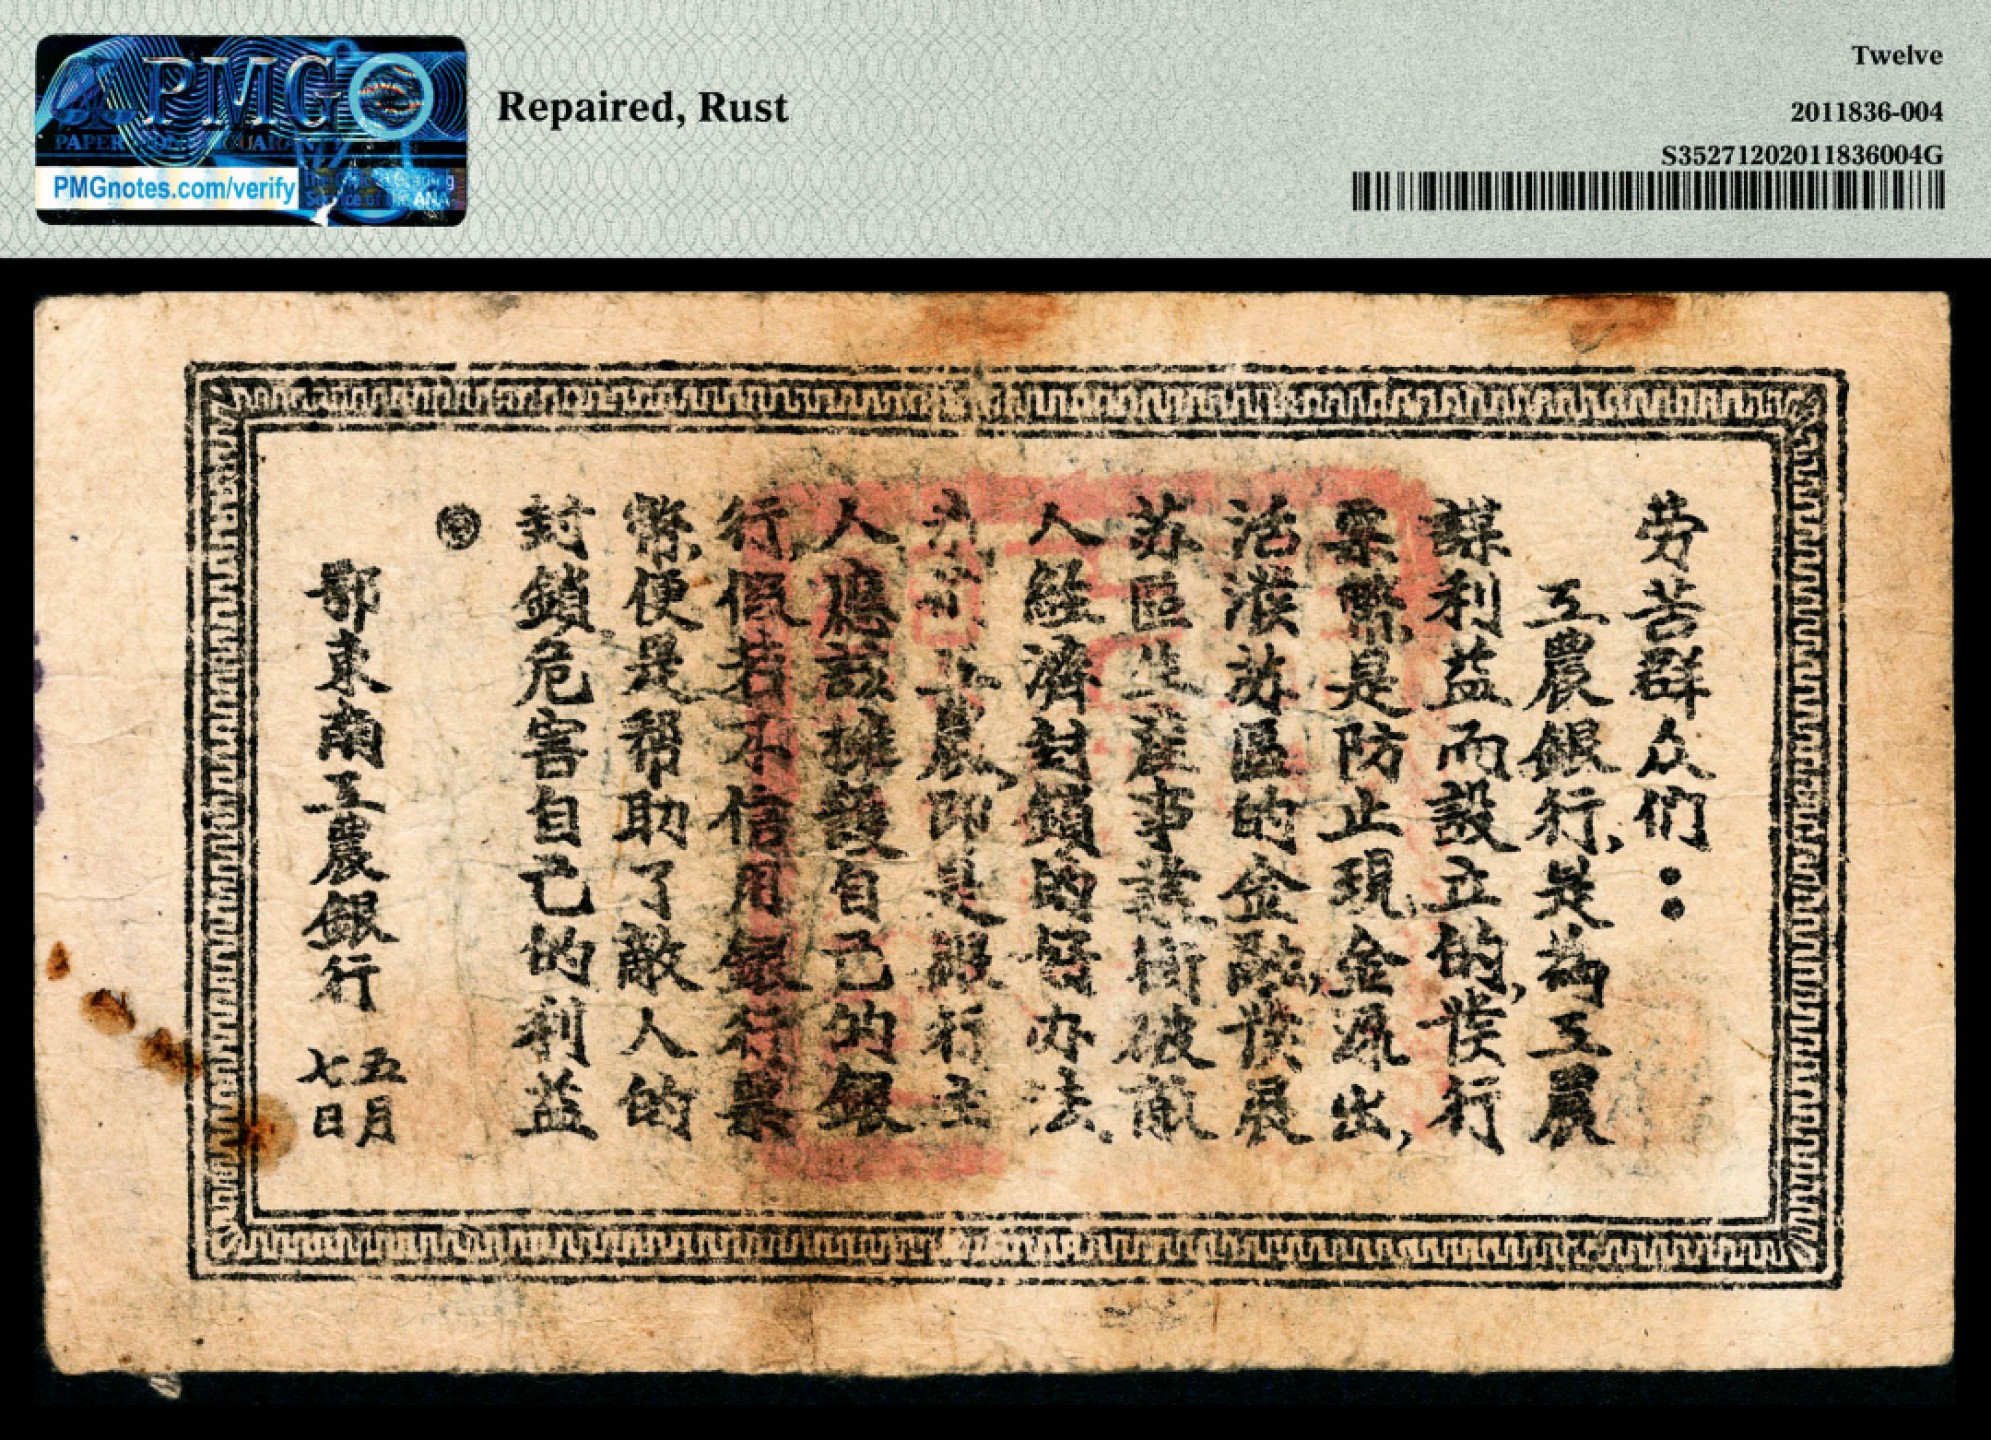 PMG
PAPER MONEY GUARANTY
PMGnotes.com/verify
ANA
Repaired, Rust
Twelve
2011836-004
S35271202011836004G
劳苦群众们：
工農銀行，是為工農
謀利益而設立的，发行
票幣，是防止現金流出，
活泼苏區的金融，发展
苏區生產事業，衝破敵
人經濟封鎖的好办法。
工農，即是銀行主
人應該擁護自己的銀
行假若不信用銀行票
幣，便是帮助了敵人的
封鎖危害自己的利益
鄂東南工農銀行 五月七日